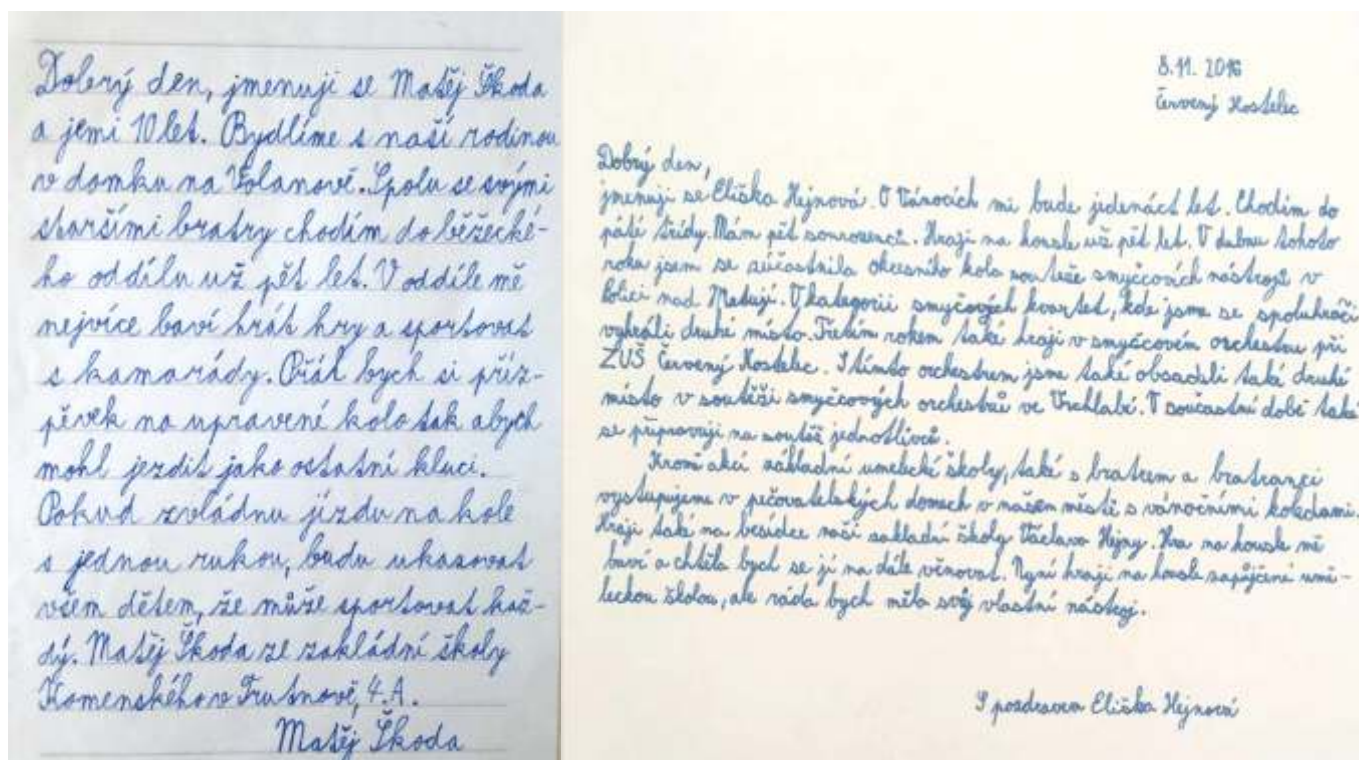 Dobrý den, jmenuji se Matěj Škoda
a jemi 10 let. Bydlíme s naší rodinou
v domku na Volanově. Spolu se svými
staršími bratry chodím do běžecké-
ho oddílu už pět let. V oddíle mě
nejvíce baví hrát hry a sportovat
s kamarády. Přál bych si příz-
pěvek na upravené kolo tak abych
mohl jezdit jako ostatní kluci.
Pokud zvládnu jízdu na kole
s jednou rukou, budu ukazovat
všem dětem, že může sportovat kaž-
dý. Matěj Škoda ze zakládní školy
Komenského v Trutnově, 4.A.
Matěj Škoda
8.11. 2016
Červený Kostelec
Dobrý den,
jmenuji se Eliška Hejnová. O Vánocích mi bude jedenáct let. Chodím do
páté třídy. Mám pět sourozenců. Hraji na housle už pět let. V dubnu tohoto
roku jsem se zúčastnila okresního kola soutěže smyčcových nástrojů v
Polici nad Metují. V kategorii smyčcových kvartet, kde jsme se spoluhráči
vyhráli druhé místo. Třetím rokem také hraji v smyčcovém orchestru při
ZUŠ Červený Kostelec. S tímto orchestrem jsme také obsadili také druhé
místo v soutěži smyčcových orchestrů ve Vrchlabí. V součastní době také
se připravuji na soutěž jednotlivců.
Kromě akcí základní umělecké školy, také s bratrem a bratranci
vystupujeme v pečovatelských domech v našem městě s vánočními koledami.
Hraji také na besídce naší základní školy Václava Hejny. Hra na housle mě
baví a chtěla bych se jí na dále věnovat. Nyní hraji na housle zapůjčené umě-
leckou školou, ale ráda bych měla svůj vlastní nástroj.
S pozdravem Eliška Hejnová